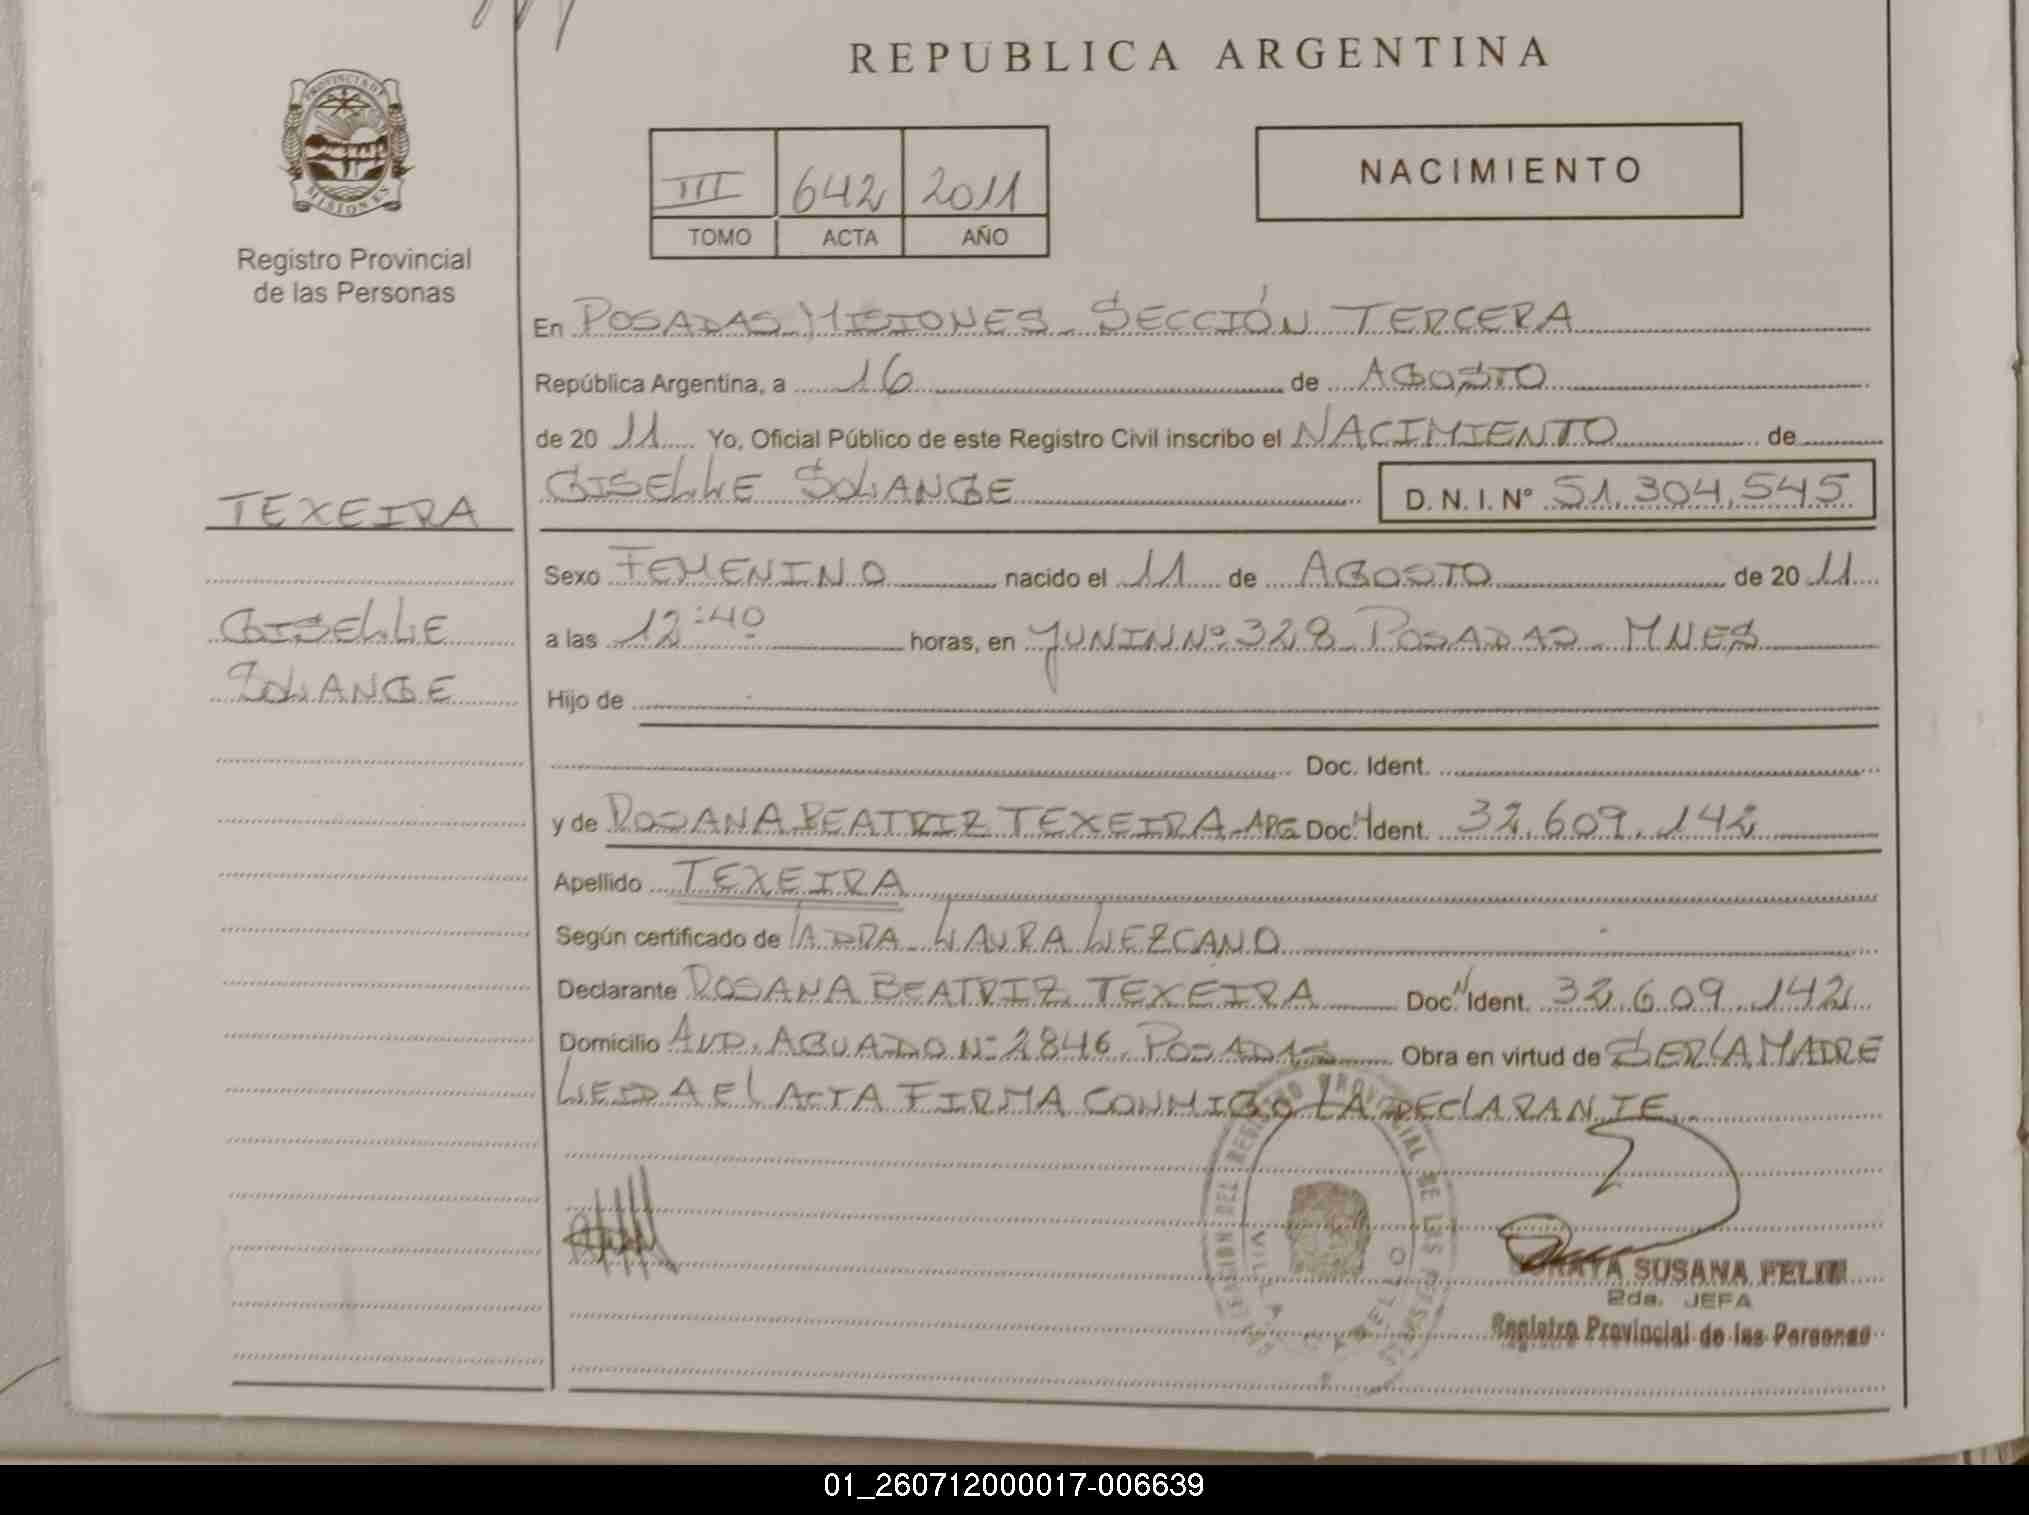 REPUBLICA ARGENTINA
PROVINCIA DE MISIONES
Registro Provincial
de las Personas
III 642 2011
TOMO ACTA AÑO
NACIMIENTO
En POSADAS MISIONES SECCIÓN TERCERA
República Argentina, a 16 de AGOSTO
de 20 11 Yo, Oficial Público de este Registro Civil inscribo el NACIMIENTO de
GISELLE SOLANGE D. N. I. N° 51.304.545
TEXEIRA
GISELLE
SOLANGE
Sexo FEMENINO nacido el 11 de AGOSTO de 20 11
a las 12:40 horas, en JUNIN Nº 328 POSADAS MNES
Hijo de
Doc. Ident.
y de ROSANA BEATRIZ TEXEIRA ARG Doc. Ident. 32.609.142
Apellido TEXEIRA
Según certificado de LA DRA LAURA LEZCANO
Declarante ROSANA BEATRIZ TEXEIRA Doc. Ident. 32.609.142
Domicilio AVD. AGUADO Nº 2846 POSADAS Obra en virtud de SER LA MADRE
LEIDA EL ACTA FIRMA CONMIGO LA DECLARANTE
DELEGACIÓN DEL REGISTRO PROVINCIAL DE LAS PERSONAS
VILLA CABELLO
SUSANA
2da. JEFA
Registro Provincial de las Personas
01_260712000017-006639